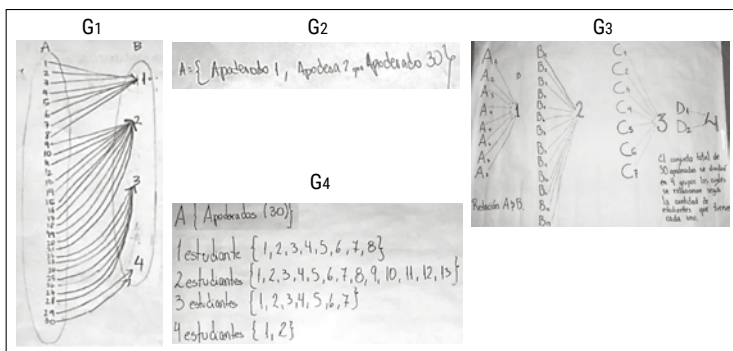 G1
A B
1
2
3
4
5
6
7
8
9
10
11
12
13
14
15
16
17
18
19
20
21
22
23
24
25
26
27
28
29
30
1
2
3
4
G2
A = { Apoderado 1, Apodera 2 Apoderado 30}
G3
A1
A2
A3
A4
A5
A6
A7
A8
1
Relación A y B.
B1
B2
B3
B4
B5
B6
B7
B8
B9
B10
B11
B12
B13
2
C1
C2
C3
C4
C5
C6
C7
3
D1
D2
4
El conjunto total de
30 apoderados se dividió
en 4 grupos los cuales
se relacionan según
la cantidad de
estudiantes que tienen
cada uno.
G4
A { Apoderados (30)}
1 estudiante {1,2,3,4,5,6,7,8}
2 estudiantes {1,2,3,4,5,6,7,8,9,10,11,12,13}
3 estudiantes {1,2,3,4,5,6,7}
4 estudiantes {1,2}